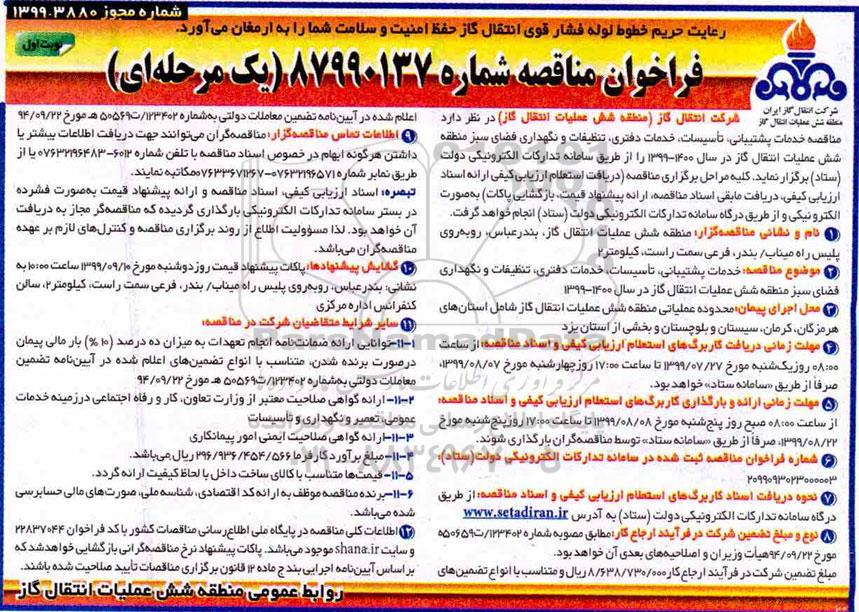 شماره مجوز ۱۳۹۹.۳۸۸۰
رعایت حریم خطوط لوله فشار قوی انتقال گاز حفظ امنیت و سلامت شما را به ارمغان می‌آورد.
نوبت اول
فراخوان مناقصه شماره ۸۷۹۹۰۱۳۷ (یک مرحله‌ای)
شرکت انتقال گاز ایران
منطقه شش عملیات انتقال گاز
شرکت انتقال گاز (منطقه شش عملیات انتقال گاز) در نظر دارد
مناقصه خدمات پشتیبانی، تأسیسات، خدمات دفتری، تنظیفات و نگهداری فضای سبز منطقه
شش عملیات انتقال گاز در سال ۱۴۰۰-۱۳۹۹ را از طریق سامانه تدارکات الکترونیکی دولت
(ستاد) برگزار نماید. کلیه مراحل برگزاری مناقصه (دریافت استعلام ارزیابی کیفی ارائه اسناد
ارزیابی کیفی، دریافت مابقی اسناد مناقصه، ارائه پیشنهاد قیمت، بازگشایی پاکات) به‌صورت
الکترونیکی و از طریق درگاه سامانه تدارکات الکترونیکی دولت (ستاد) انجام خواهد گرفت.
۱ نام و نشانی مناقصه‌گزار: منطقه شش عملیات انتقال گاز، بندرعباس، روبه‌روی
پلیس راه میناب/ بندر، فرعی سمت راست، کیلومتر ۲
۲ موضوع مناقصه: خدمات پشتیبانی، تأسیسات، خدمات دفتری، تنظیفات و نگهداری
فضای سبز منطقه شش عملیات انتقال گاز در سال ۱۴۰۰-۱۳۹۹
۳ محل اجرای پیمان: محدوده عملیاتی منطقه شش عملیات انتقال گاز شامل استان‌های
هرمزگان، کرمان، سیستان و بلوچستان و بخشی از استان یزد
۴ مهلت زمانی دریافت کاربرگ‌های استعلام ارزیابی کیفی و اسناد مناقصه: از ساعت
۰۸:۰۰ روز یک‌شنبه مورخ ۱۳۹۹/۰۷/۲۷ تا ساعت ۱۷:۰۰ روز چهارشنبه مورخ ۱۳۹۹/۰۸/۰۷،
صرفاً از طریق «سامانه ستاد» خواهد بود.
۵ مهلت زمانی ارائه و بارگذاری کاربرگ‌های استعلام ارزیابی کیفی و اسناد مناقصه:
از ساعت ۰۸:۰۰ صبح روز پنج‌شنبه مورخ ۱۳۹۹/۰۸/۰۸ تا ساعت ۱۷:۰۰ روز پنج‌شنبه مورخ
۱۳۹۹/۰۸/۲۲، صرفاً از طریق «سامانه ستاد» توسط مناقصه‌گران بارگذاری شوند.
۶ شماره فراخوان مناقصه ثبت شده در سامانه تدارکات الکترونیکی دولت (ستاد):
۲۰۹۹۰۹۳۰۲۳۰۰۰۰۰۳
۷ نحوه دریافت اسناد کاربرگ‌های استعلام ارزیابی کیفی و اسناد مناقصه: از طریق
درگاه سامانه تدارکات الکترونیکی دولت (ستاد) به آدرس www.setadiran.ir
۸ نوع و مبلغ تضمین شرکت در فرآیند ارجاع کار: مطابق مصوبه شماره ۱۲۳۴۰۲/ت۵۰۶۵۹
مورخ ۹۴/۰۹/۲۲ هیأت وزیران و اصلاحیه‌های بعدی آن خواهد بود.
مبلغ تضمین شرکت در فرآیند ارجاع کار ۸/۶۳۸/۷۳۰/۰۰۰ ریال و متناسب با انواع تضمین‌های
اعلام شده در آیین‌نامه تضمین معاملات دولتی به‌شماره ۱۲۳۴۰۲/ت۵۰۵۶۹ هـ مورخ ۹۴/۰۹/۲۲
۹ اطلاعات تماس مناقصه‌گزار: مناقصه‌گران می‌توانند جهت دریافت اطلاعات بیشتر یا
داشتن هرگونه ابهام در خصوص اسناد مناقصه با تلفن شماره ۶۰۱۲-۰۷۶۳۲۱۹۶۴۸۳ یا از
طریق نمابر شماره ۰۷۶۳۲۱۹۶۵۷۱-۰۷۶۳۳۶۷۱۲۶۷ مکاتبه نمایند.
تبصره: اسناد ارزیابی کیفی، اسناد مناقصه و ارائه پیشنهاد قیمت به‌صورت فشرده
در بستر سامانه تدارکات الکترونیکی بارگذاری گردیده که مناقصه‌گر مجاز به دریافت
آن خواهد بود. لذا مسؤولیت اطلاع از روند برگزاری مناقصه و کنترل‌های لازم بر عهده
مناقصه‌گران می‌باشد.
۱۰ گشایش پیشنهادها: پاکات پیشنهاد قیمت روز دوشنبه مورخ ۱۳۹۹/۰۹/۱۰ ساعت ۱۰:۰۰ به
نشانی: بندرعباس، روبه‌روی پلیس راه میناب/ بندر، فرعی سمت راست، کیلومتر ۲، سالن
کنفرانس اداره مرکزی
۱۱ سایر شرایط متقاضیان شرکت در مناقصه:
۱-۱۱-توانایی ارائه ضمانت‌نامه انجام تعهدات به میزان ده درصد (۱۰ %) بار مالی پیمان
درصورت برنده شدن، متناسب با انواع تضمین‌های اعلام شده در آیین‌نامه تضمین
معاملات دولتی به‌شماره ۱۲۳۴۰۲/ت۵۰۵۶۹ هـ مورخ ۹۴/۰۹/۲۲
۲-۱۱- ارائه گواهی صلاحیت معتبر از وزارت تعاون، کار و رفاه اجتماعی در زمینه خدمات
عمومی، تعمیر و نگهداری و تأسیسات
۳-۱۱- ارائه گواهی صلاحیت ایمنی امور پیمانکاری
۴-۱۱- مبلغ برآورد کارفرما ۲۹۶/۹۳۶/۴۵۴/۵۶۶ ریال می‌باشد.
۵-۱۱- قیمت‌ها متناسب با کالای ساخت داخل با لحاظ کیفیت ارائه گردد.
۶-۱۱-برنده مناقصه موظف به ارائه کد اقتصادی، شناسه ملی، صورت‌های مالی حسابرسی
شده می‌باشد.
۱۲ اطلاعات کلی مناقصه در پایگاه ملی اطلاع‌رسانی مناقصات کشور با کد فراخوان ۲۲۸۳۷۰۴۴
و سایت shana.ir موجود می‌باشد. پاکات پیشنهاد نرخ مناقصه‌گرانی بازگشایی خواهد شد که
بر اساس آیین‌نامه اجرایی بند ج ماده ۱۲ قانون برگزاری مناقصات تأیید صلاحیت شده باشند.
روابط عمومی منطقه شش عملیات انتقال گاز